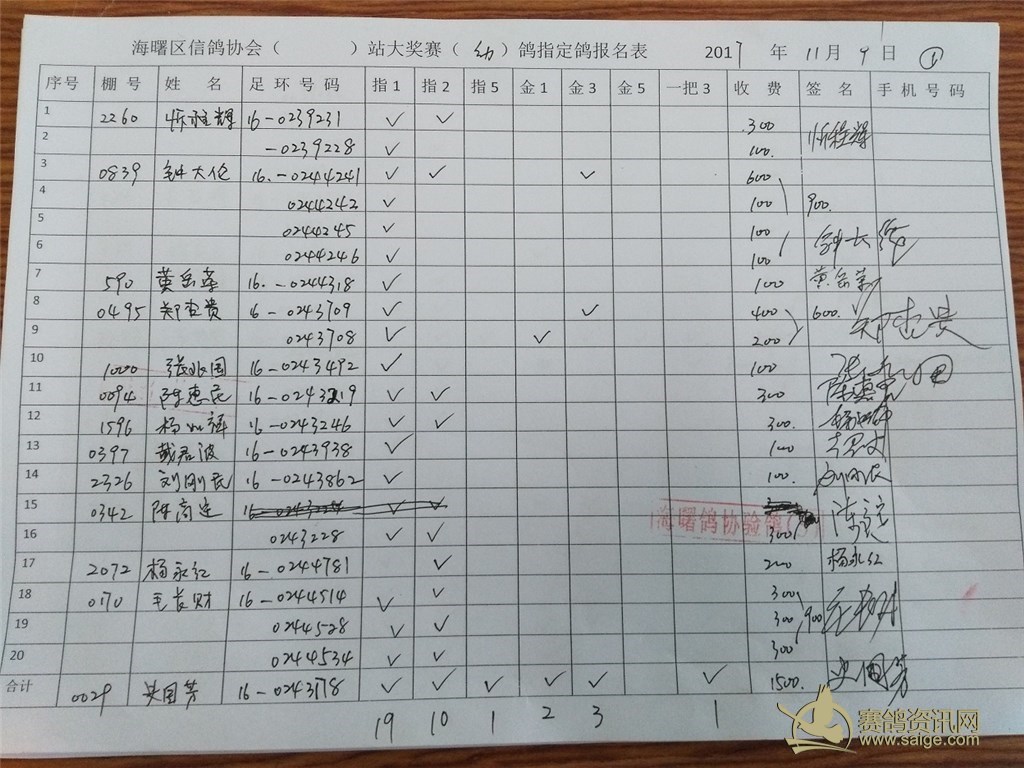 海曙区信鸽协会（ ）站大奖赛（幼）鸽指定鸽报名表 2017 年 11 月 9 日 ①
序号 棚号 姓 名 足环号码 指1 指2 指5 金1 金3 金5 一把3 收 费 签 名 手机号码
1 2260 16-0239231 ✓ ✓ 300
2 -0239228 ✓ 100.
3 0839 钟大伦 16.-0244241 ✓ ✓ ✓ 600
4 0244242 ✓ 100 900.
5 0244245 ✓ 100 钟大伦
6 0244246 ✓ 100
7 590 黄岳革 16.-0244318 ✓ 100 黄岳革
8 0495 16-0243709 ✓ ✓ 400 600.
9 0243708 ✓ ✓ 200
10 1000 张兆国 16-0243492 ✓ 100
11 0094 陈惠民 16-0243219 ✓ ✓ 300 陈惠民
12 1596 16-0243246 ✓ ✓ 300.
13 0397 戴君波 16-0243938 ✓ 100
14 2326 刘刚民 16-0243862 ✓ 100. 刘刚民
15 0342
海曙鸽协验鸽(3)
16 0243228 ✓ ✓ 300
17 2072 杨永红 16-0244781 ✓ 200 杨永红
18 0170 毛长财 16-0244514 ✓ ✓ 300
19 0244528 ✓ ✓ 300 900
20 0244534 ✓ ✓ 300
合计 0029 史国芳 16-0243178 ✓ ✓ ✓ ✓ ✓ ✓ 1500. 史国芳
19 10 1 2 3 1
赛鸽资讯网
www.saige.com